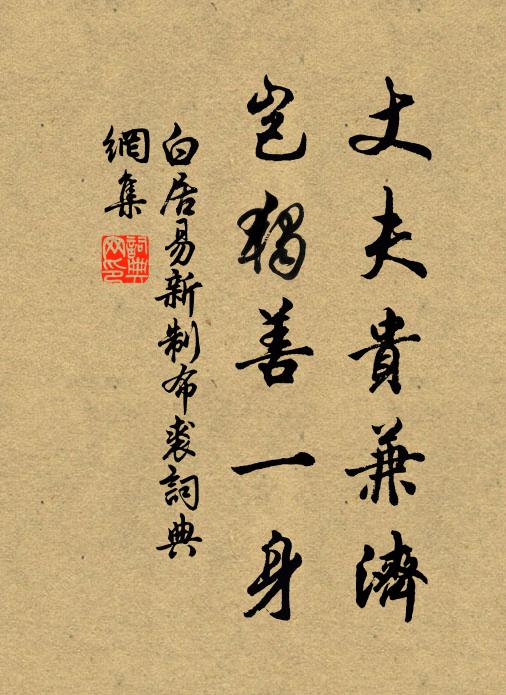 丈夫貴兼濟
豈獨善一身
白居易新制布裘詞典
網集
詞典
网印